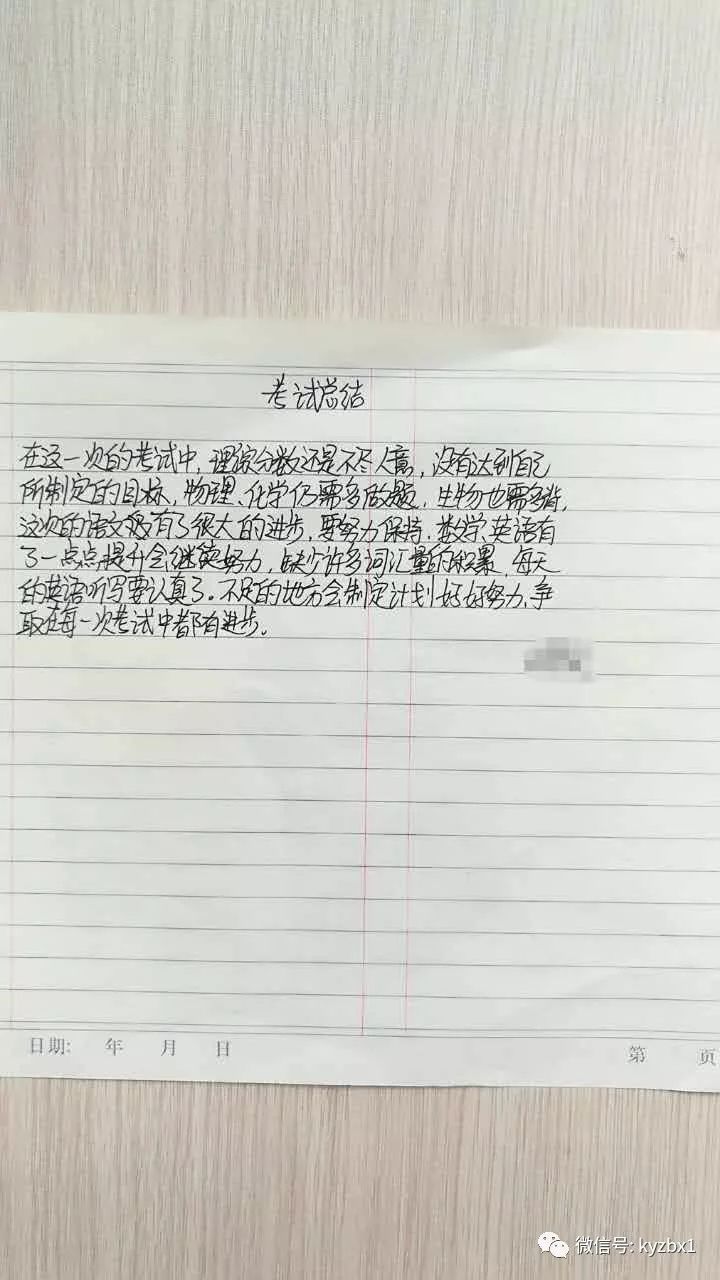 考试总结
在这一次的考试中，理综分数还是不尽人意，没有达到自己
所制定的目标，物理、化学仍需多做题，生物也需多背，
这次的语文有了很大的进步，要努力保持，数学、英语有
了一点点提升会继续努力，缺少许多词汇量的积累，每天
的英语听写要认真了。不足的地方会制定计划好好努力、争
取在每一次考试中都有进步。
日期: 年 月 日
第 页
微信号: kyzbx1